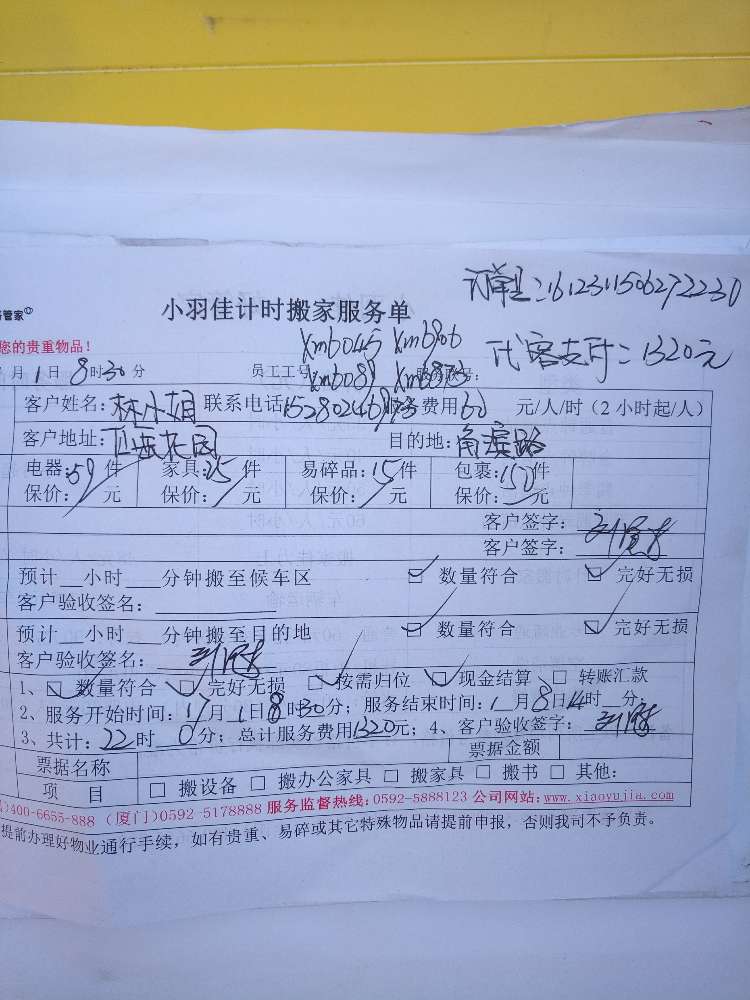 订单号:1612311506272230
管家
小羽佳计时搬家服务单
您的贵重物品!
Xm6045 Xm6906
代客支付:1320元
月1日8时30分 员工工号:
Xm6089 Xm6873
客户姓名:林小姐 联系电话 服务费用60 元/人/时(2小时起/人)
客户地址: 花园 目的地:角滨路
电器:59件 家具:25件 易碎品:15件 包裹:150件
保价: 元 保价: 元 保价: 元 保价: 元
客户签字:
客户签字:
预计 小时 分钟搬至候车区 ☑ 数量符合 ☑ 完好无损
客户验收签名:
预计 小时 分钟搬至目的地 ☑ 数量符合 ☑ 完好无损
客户验收签名:
1、☑ 数量符合 ☑ 完好无损 ☑ 按需归位 ☑ 现金结算 □ 转账汇款
2、服务开始时间:17月1日8时30分;服务结束时间:1月8日14时 分;
3、共计:22时0分;总计服务费用1320元;4、客户验收签字:
票据名称 票据金额
项 目 □ 搬设备 □ 搬办公家具 □ 搬家具 □ 搬书 □ 其他:
)400-6655-888 (厦门)0592-5178888 服务监督热线:0592-5888123 公司网站:www.xiaoyujia.com
提前办理好物业通行手续,如有贵重、易碎或其它特殊物品请提前申报,否则我司不予负责。